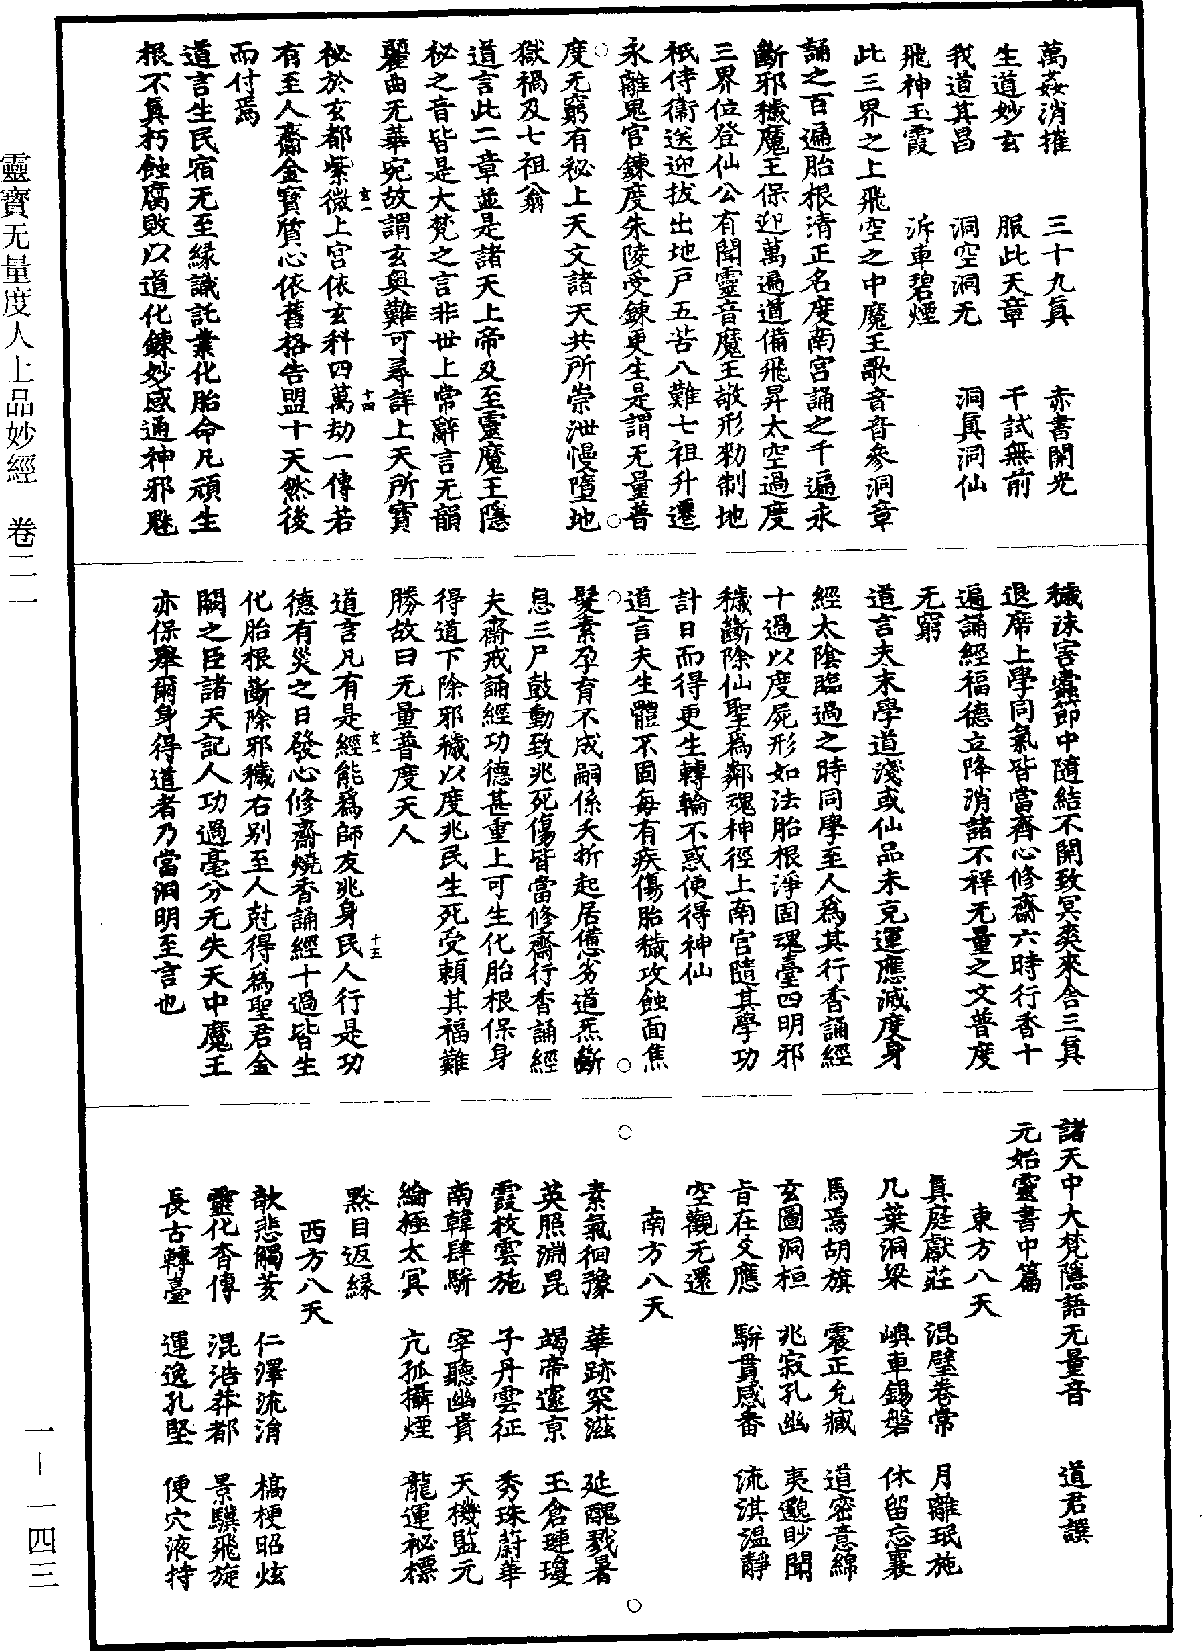 萬姦消摧　三十九真　赤書開光
生道妙玄　服此天章　千試無前
我道其昌　洞空洞无　洞真洞仙
飛神玉霞　泝車碧煙
此三界之上飛空之中魔王歌音音參洞章
誦之百遍胎根清正名度南宮誦之千遍永
斷邪穢魔王保迎萬遍道備飛昇太空過度
三界位登仙公有聞靈音魔王敬形勑制地
祇侍衞送迎拔出地戸五苦八難七祖升遷
永離鬼官鍊度朱陵受鍊更生是謂无量普
度无窮有秘上天文諸天共所崇泄慢墮地
獄禍及七祖翁
道言此二章並是諸天上帝及至靈魔王隱
秘之音皆是大梵之言非世上常辭言无韻
麗曲无華宛故謂玄奥難可尋詳上天所寶
秘於玄都紫微上宮依玄科四萬劫一傳若
有至人齋金寶質心依舊格告盟十天然後
而付焉
道言生民宿无至緣識託業化胎命凡頑生
根不真朽蝕腐敗以道化鍊妙感通神邪魅
穢沬害蠹節中隨結不開致冥奕來舍三真
退席上學同氣皆當齊心修齋六時行香十
遍誦經福德立降消諸不祥无量之文普度
无窮
道言夫末學道淺或仙品未克運應滅度身
經太陰臨過之時同學至人爲其行香誦經
十過以度屍形如法胎根淨固魂臺四明邪
穢斷除仙聖爲鄰魂神徑上南宮隨其學功
計日而得更生轉輪不惑使得神仙
道言夫生體不固每有疾傷胎穢攻蝕面焦
髮素孕育不成嗣係夭折起居憊劣道炁斷
息三尸鼓動致兆死傷皆當修齋行香誦經
夫齋戒誦經功德甚重上可生化胎根保身
得道下除邪穢以度兆民生死受賴其福難
勝故曰无量普度天人
道言凡有是經能爲師友兆身民人行是功
德有災之日發心修齋燒香誦經十過皆生
化胎根斷除邪穢右别至人尅得爲聖君金
闕之臣諸天記人功過毫分无失天中魔王
亦保舉爾身得道者乃當洞明至言也
諸天中大梵隱語无量音　道君譔
元始靈書中篇
東方八天
真庭獻莊　混璧卷常　月離珉施
几葉洞梁　嶼車錫磐　休留忘襄
馬焉胡旗　震正允臧　道密意綿
玄圖洞桓　兆寂孔幽　夷邈眇閒
旨在爻應　騈貫感番　流淇温靜
空觀无還
南方八天
素氣徊豫　華跡罙滋　延醜戮暑
英照淵昆　竭帝邃京　玉倉璉瓊
霞枚雲施　子丹雲征　秀珠蔚華
南韓肆騈　宰聽幽貴　天機監元
綸極太冥　亢孤攝煙　龍運祕標
黙目返緣
西方八天
歆悲觸荄　仁澤流淯　槁梗昭炫
靈化杳傳　混浩莽都　景騏飛旋
長古轉臺　運逸孔堅　便穴液持
玄一
十四
玄二
十五
靈寶无量度人上品妙經　卷二一
一－一四三